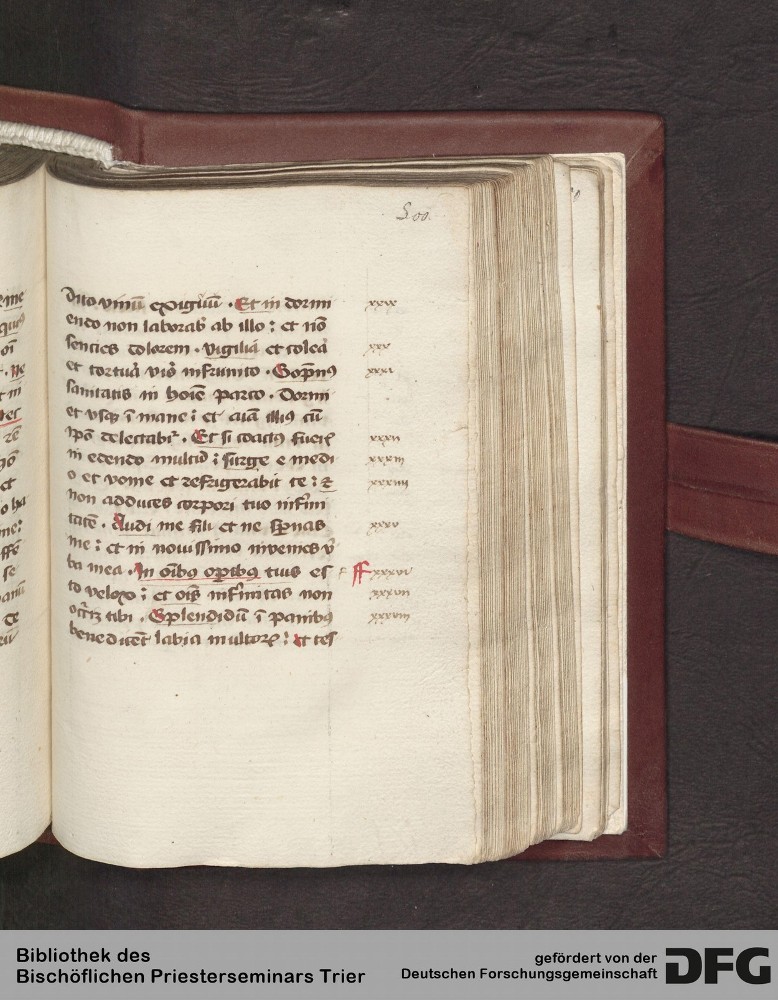 500
duo vinū exiguū . Et in dormi
endo non laborab ab illo : et nō
sencies dolorem . vigilia et colea
et tortua viō infrunito . Sopnꝰ
sanitatis in hoīe parco . Dormi
et vsqꝫ ī mane : et aīa illiꝰ cū
ipō delectabiᵗ . Et si coactꝰ fueris
in edendo multū : surge e medi
o et vome et refrigerabit te : ⁊
non adduces corpori tuo infirmi
tatē . Audi me fili et ne spnas
me : et in nouissimo inuenies v̄
ba mea . In oībꝰ opībꝰ tuis es
to velox : et oīs infirmitas non
occꝛꝫ tibi . Splendidū ī panibꝰ
benedicēt labia multoꝝ : et tes
xxix
xxx
xxxi
xxxii
xxxiii
xxxiiii
xxxv
xxxvi
xxxvii
xxxviii
Bibliothek des
Bischöflichen Priesterseminars Trier
gefördert von der
Deutschen Forschungsgemeinschaft
DFG